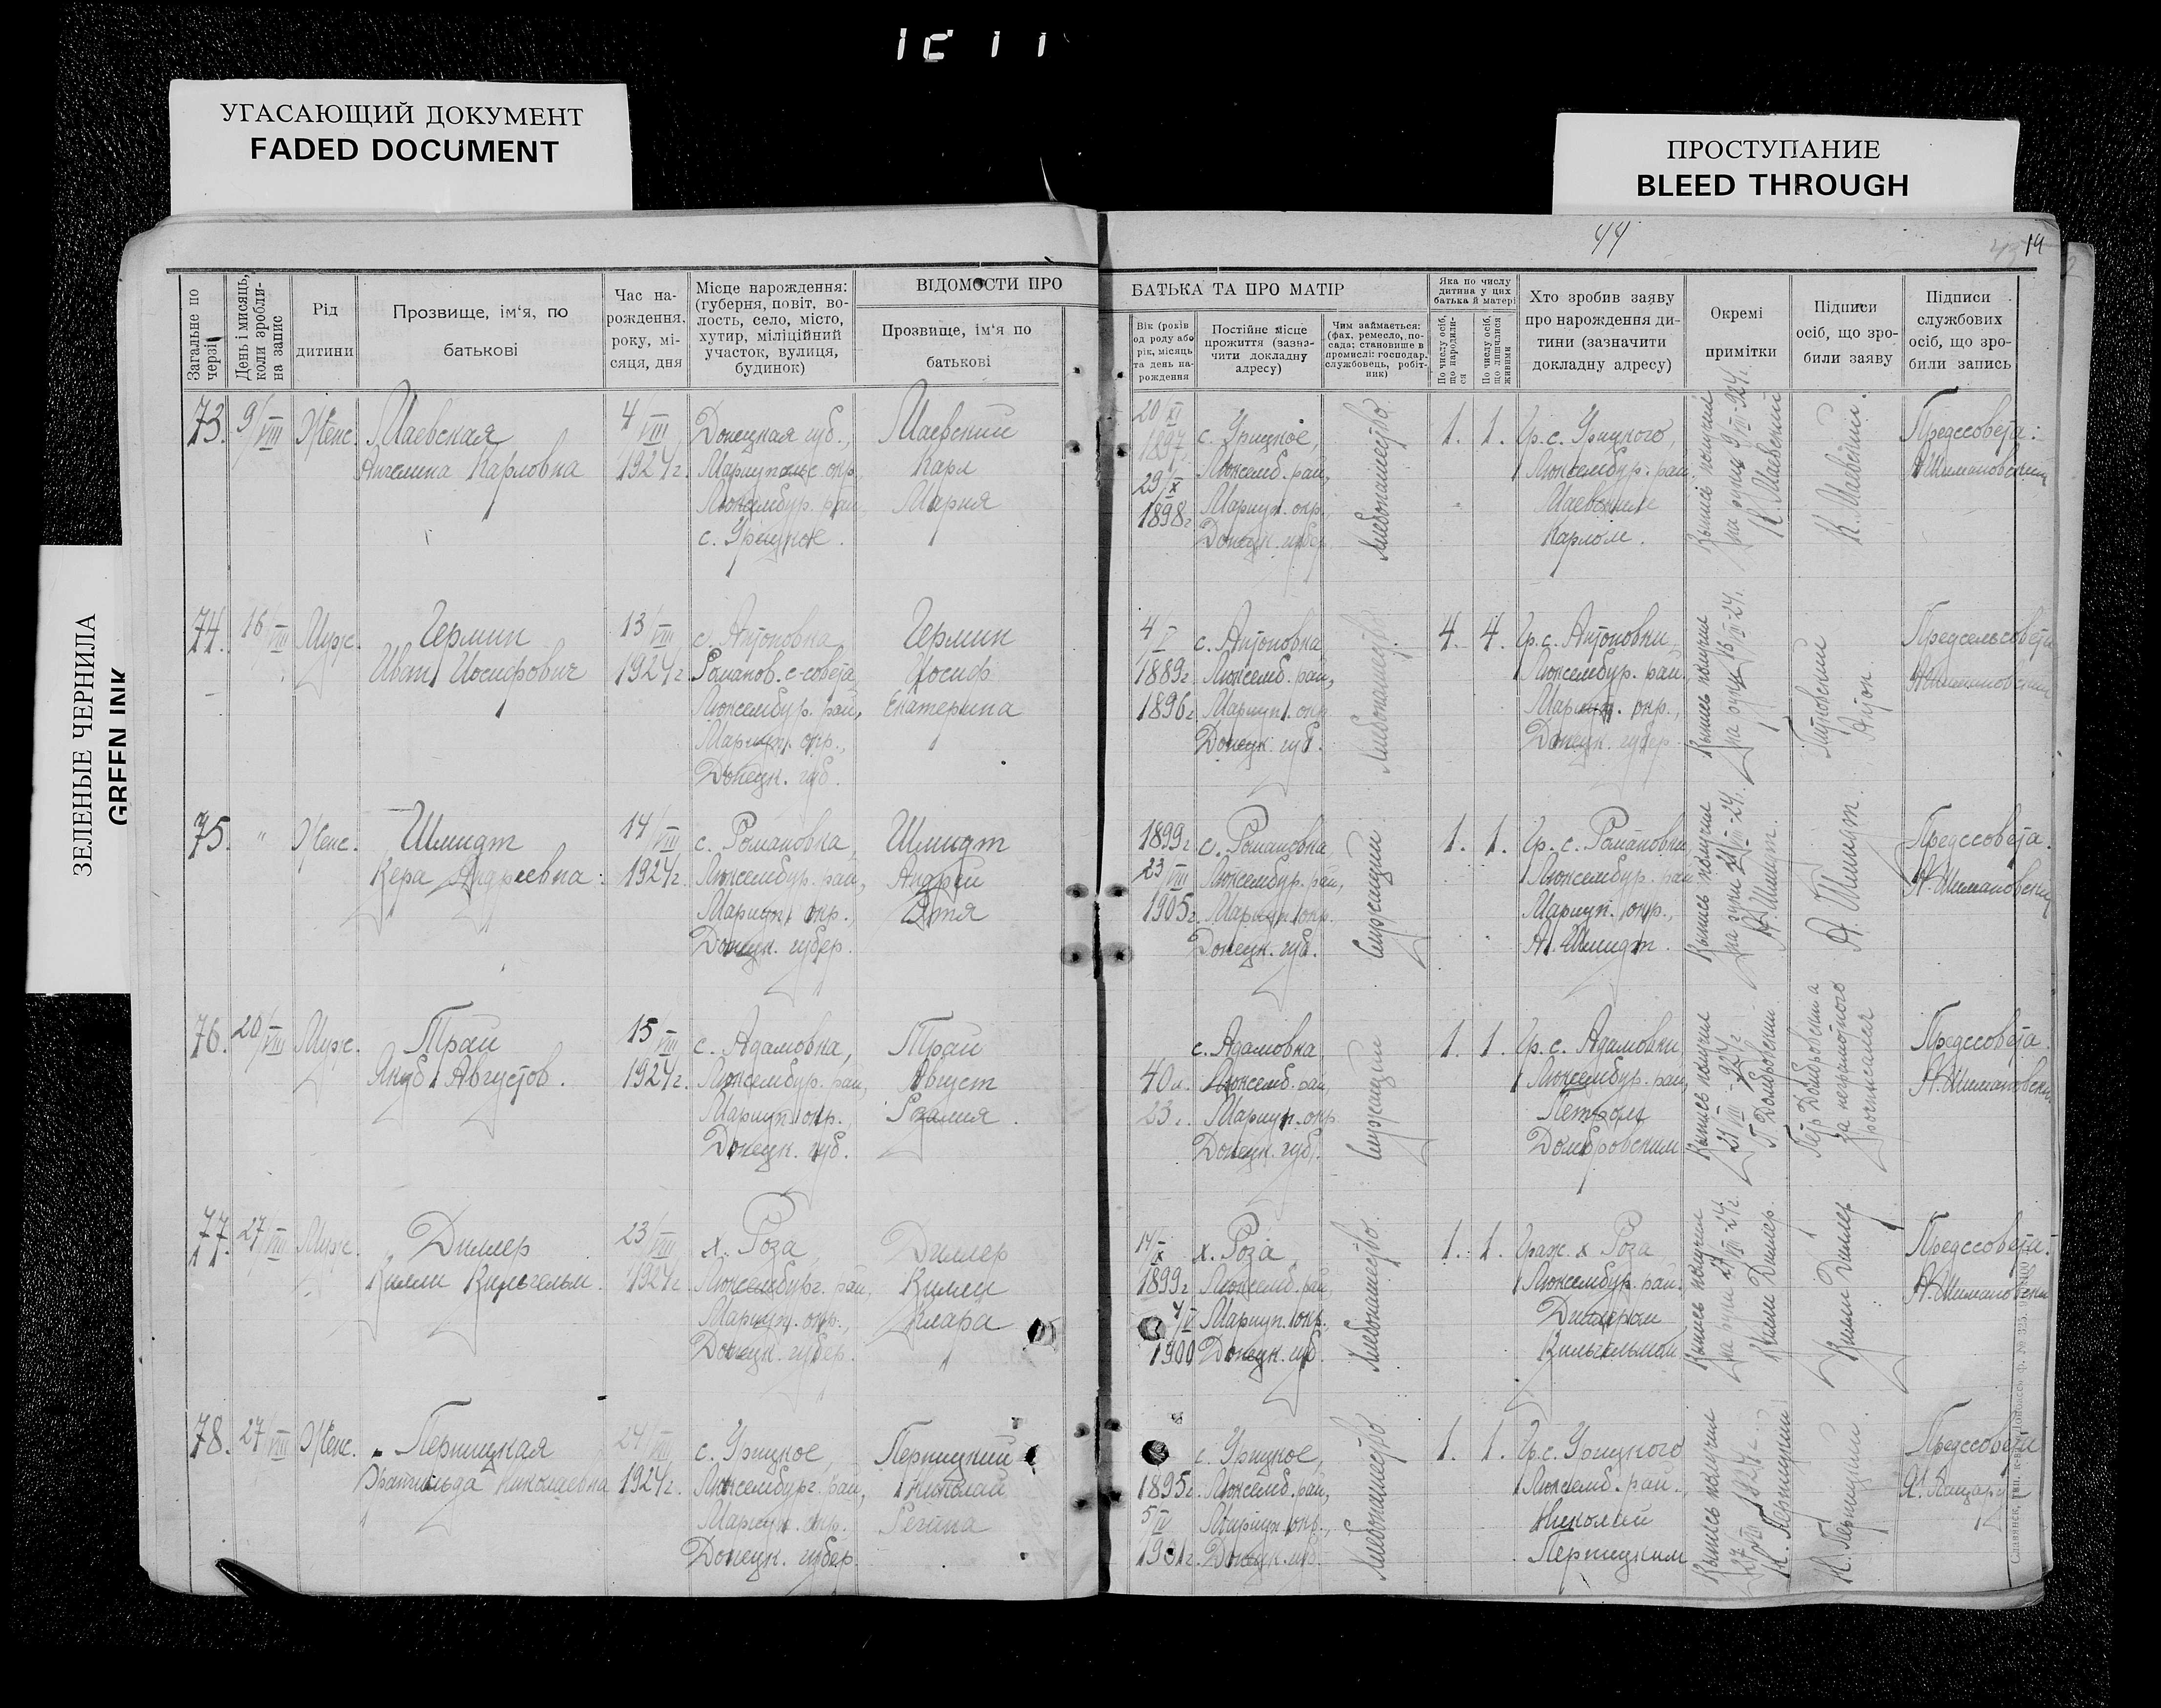 УГАСАЮЩИЙ ДОКУМЕНТ
FADED DOCUMENT
ПРОСТУПАНИЕ
BLEED THROUGH
ЗЕЛЕНЫЕ ЧЕРНИЛА
GREEN INK
44
14
ВІДОМОСТИ ПРО
БАТЬКА ТА ПРО МАТІР
Загальне по черзі
День і мисяць, коли зробили на запис
Рід дитини
Прозвище, ім‘я, по батькові
Час народження, року, місяця, дня
Місце нарождення: (губерня, повіт, волость, село, місто, хутир, міліційний участок, вулиця, будинок)
Прозвище, ім‘я по батькові
Вік (років од роду або рік, місяць та день народження
Постійне місце прожиття (зазначити докладну адресу)
Чим займається: (фах, ремесло, посада; становище в промислі: господар, службовець, робітник)
Яка по числу дитина у цих батька й матері
По числу осіб, що народилися
По числу осіб, що лишилися живими
Хто зробив заяву про нарождення дитини (зазначити докладну адресу)
Окремі примітки
Підписи осіб, що зробили заяву
Підписи службових осіб, що зробили запись
73.
9/VIII
Женс.
Маевская
Ангелина Карловна
4/VIII
1924г.
Донецкая губ.,
Мариупольс. окр.
Люксембур. рай,
с. Урицкое.
Маевский
Карл
Мария
20/XI
1897
29/IX
1898г
с. Урицкое,
Люксемб. рай,
Мариуп. окр.,
Донецк. губер.
Хлебопашество.
1.
1.
Гр. с. Урицкого,
Люксембур. рай.
Маевским
Карлом.
Выпись получил
на руки 9/VIII-924г.
К. Маевский
К. Маевский.
Предссовета:
А Шимановский
74.
16/VIII
Муж.
Гермин
Иван Иосифович
13/VIII
1924г
с. Антоновка
Романов. с-совета,
Люксембур. рай,
Мариуп. окр.,
Донецк. губ.
Гермин
Иосиф
Екатерина
1889г
1896г
с. Антоновка
Люксемб. рай,
Мариуп. окр
Донецк. губ.
Хлебопашеств.
4.
4.
Гр. с. Антоновки,
Люксембур. рай.
Мариуп. окр.,
Донецк. губер.
Выпись получил
на руки 16/VIII-24г.
Антон
Предсельсовета
А Шимановский
75.
"
Женс.
Шмидт
Вера Андреевна.
14/VIII
1924г.
с. Романовка,
Люксембур. рай,
Мариуп. окр.,
Донецк. губер.
Шмидт
Андрей
1899г
23/VIII
1905г.
с. Романовка
Люксембур. рай,
Мариуп. окр.
Донецк. губ.
Служащий
1.
1.
Гр. с. Романовки,
Люксембур. рай
Мариуп. окр.,
А. Шмидт.
Выпись получил
на руки 21/VIII-24г.
А. Шмидт.
А. Шмидт.
Предссовета.
А. Шимановский
76.
20/VIII
Муж.
Трай
Якуб Августов.
15/VIII
1924г.
с. Адамовка,
Люксембур. рай,
Мариуп. окр.
Донецк. губ.
Трай
Август
Розалия.
40л.
23л.
с. Адамовка
Люксемб. рай,
Мариуп. окр
Донецк. губ.
Служащий
1.
1.
Гр. с. Адамовки,
Люксембур. рай,
Петром
Домбровским
Выпись получил
21/VIII-924г.
П. Домбровский
за неграмотного
росписался
Предссовета.
А. Шимановский
77.
27/VIII
Муж.
Диллер
Вилли Вильгельм.
23/VIII
1924г.
х. Роза,
Люксембург. рай,
Мариуп. окр.,
Донецк. губер.
Диллер
Вилли
Клара
14/X
1899г
1900
х. Роза
Люксемб. рай,
Мариуп. окр.
Донецк. губ.
Хлебопашество.
1.
1.
Граж. х Роза
Люксембур. рай.
Диллером
Вильгельмом
Выпись получил
на руки 27/VIII-24г.
Вилли Диллер
Вилли Диллер
Предссовета:
А. Шимановский
78.
27/VIII
Женс.
Перницкая
Николаевна
24/VIII
1924г.
с. Урицкое,
Люксембург. рай,
Мариуп. окр.
Донецк. губер.
Перницкий
Николай
Регина
1895г.
5/IV
1901г
с. Урицкое,
Люксемб. рай,
Мариуп. окр.,
Донецк. губ.
Хлебопашество
1.
1.
Гр. с. Урицкого
Люксемб. рай.
Николай
Перницким
Выпись получил
27/VIII 1924г.
Н. Перницкий
Н. Перницкий.
Предссовета